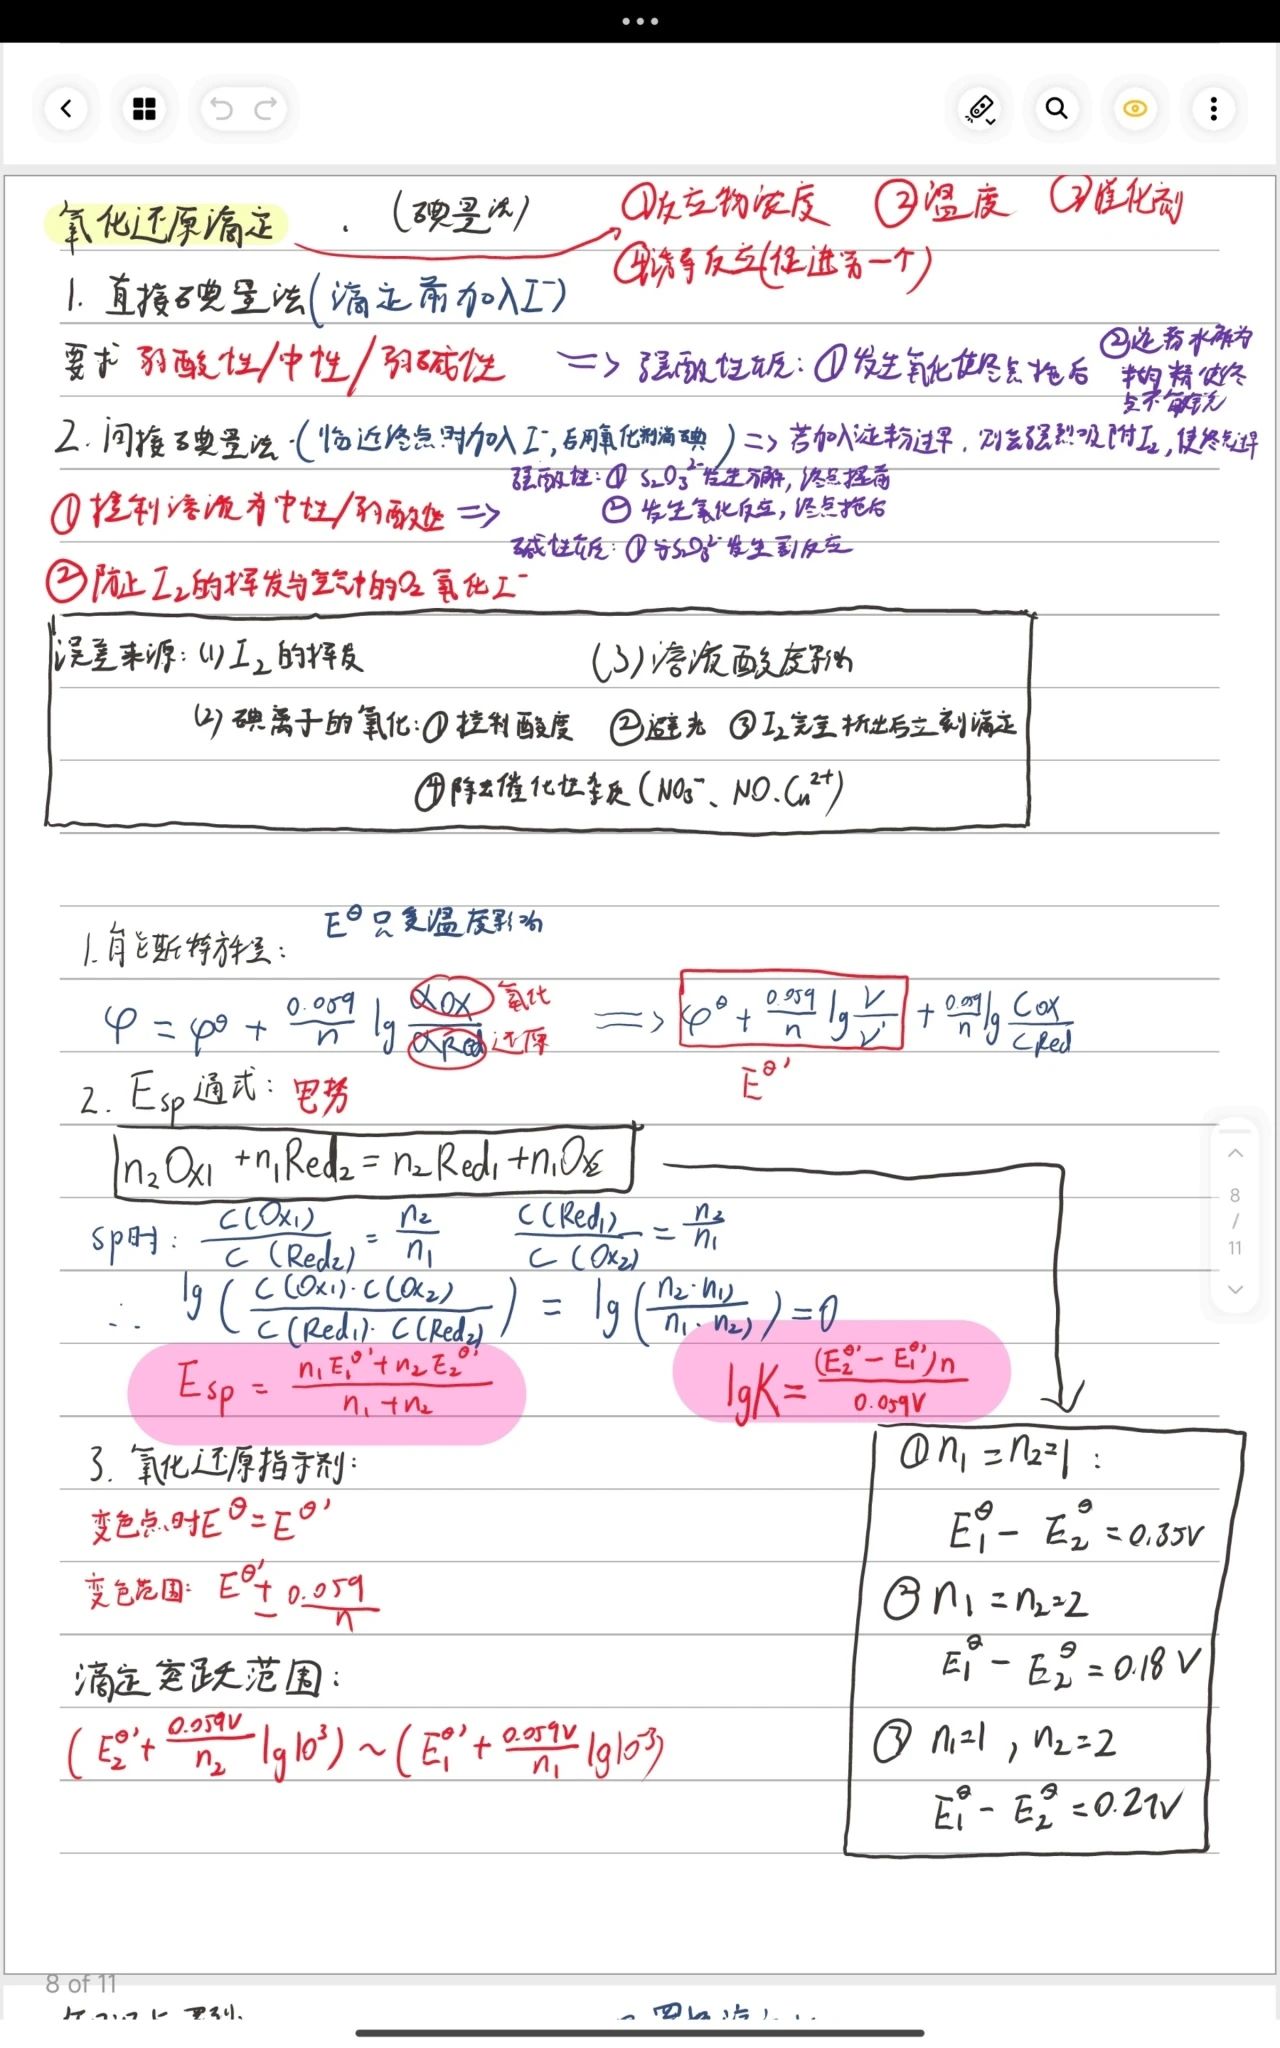 氧化还原滴定 (碘量法) ①反应物浓度 ②温度 ③催化剂
④诱导反应(促进另一个)
1. 直接碘量法(滴定前加入I⁻)
要求 弱酸性/中性/弱碱性 => 强酸性在反: ①发生氧化使终点拖后 ②淀粉水解为
糊精使终
点不敏锐
2. 间接碘量法(临近终点时加入I⁻,后用氧化剂滴碘) => 若加入淀粉过早,则会强烈吸附I₂,使终点过早
①控制溶液为中性/弱酸性 => 强酸性: ① S₂O₃²⁻发生分解,终点提前
② 发生氧化反应,终点拖后
碱性在反: ①与S₂O₃²⁻发生副反应
②防止I₂的挥发与空气中的O₂氧化I⁻
误差来源: (1) I₂的挥发 (3)溶液酸度影响
(2) 碘离子的氧化: ①控制酸度 ②避光 ③I₂完全析出后立刻滴定
④除去催化性杂质(NO₃⁻、NO、Cu²⁺)
E^θ只受温度影响
1. 能斯特方程:
φ = φ^θ + 0.059/n lg αOx/αRed 氧化 还原 => φ^θ + 0.059/n lg γ/γ' + 0.059/n lg COx/CRed
E^θ'
2. Esp通式: 电势
n₂Ox₁ + n₁Red₂ = n₂Red₁ + n₁Ox₂
sp时: C(Ox₁)/C(Red₂) = n₂/n₁ C(Red₁)/C(Ox₂) = n₂/n₁
∴ lg(C(Ox₁)·C(Ox₂)/C(Red₁)·C(Red₂)) = lg(n₂·n₁/n₁·n₂) = 0
Esp = n₁E₁^θ' + n₂E₂^θ' / n₁+n₂ lgK = (E₂^θ' − E₁^θ')n / 0.059V
3. 氧化还原指示剂:
变色点时E^θ = E^θ'
变色范围: E^θ' ± 0.059/n
滴定突跃范围:
(E₂^θ' + 0.059V/n₂ lg10³) ~ (E₁^θ' + 0.059V/n₁ lg10⁻³)
① n₁=n₂=1:
E₁^θ − E₂^θ = 0.35V
② n₁=n₂=2
E₁^θ − E₂^θ = 0.18V
③ n₁=1, n₂=2
E₁^θ − E₂^θ = 0.27V
8
/
11
8 of 11